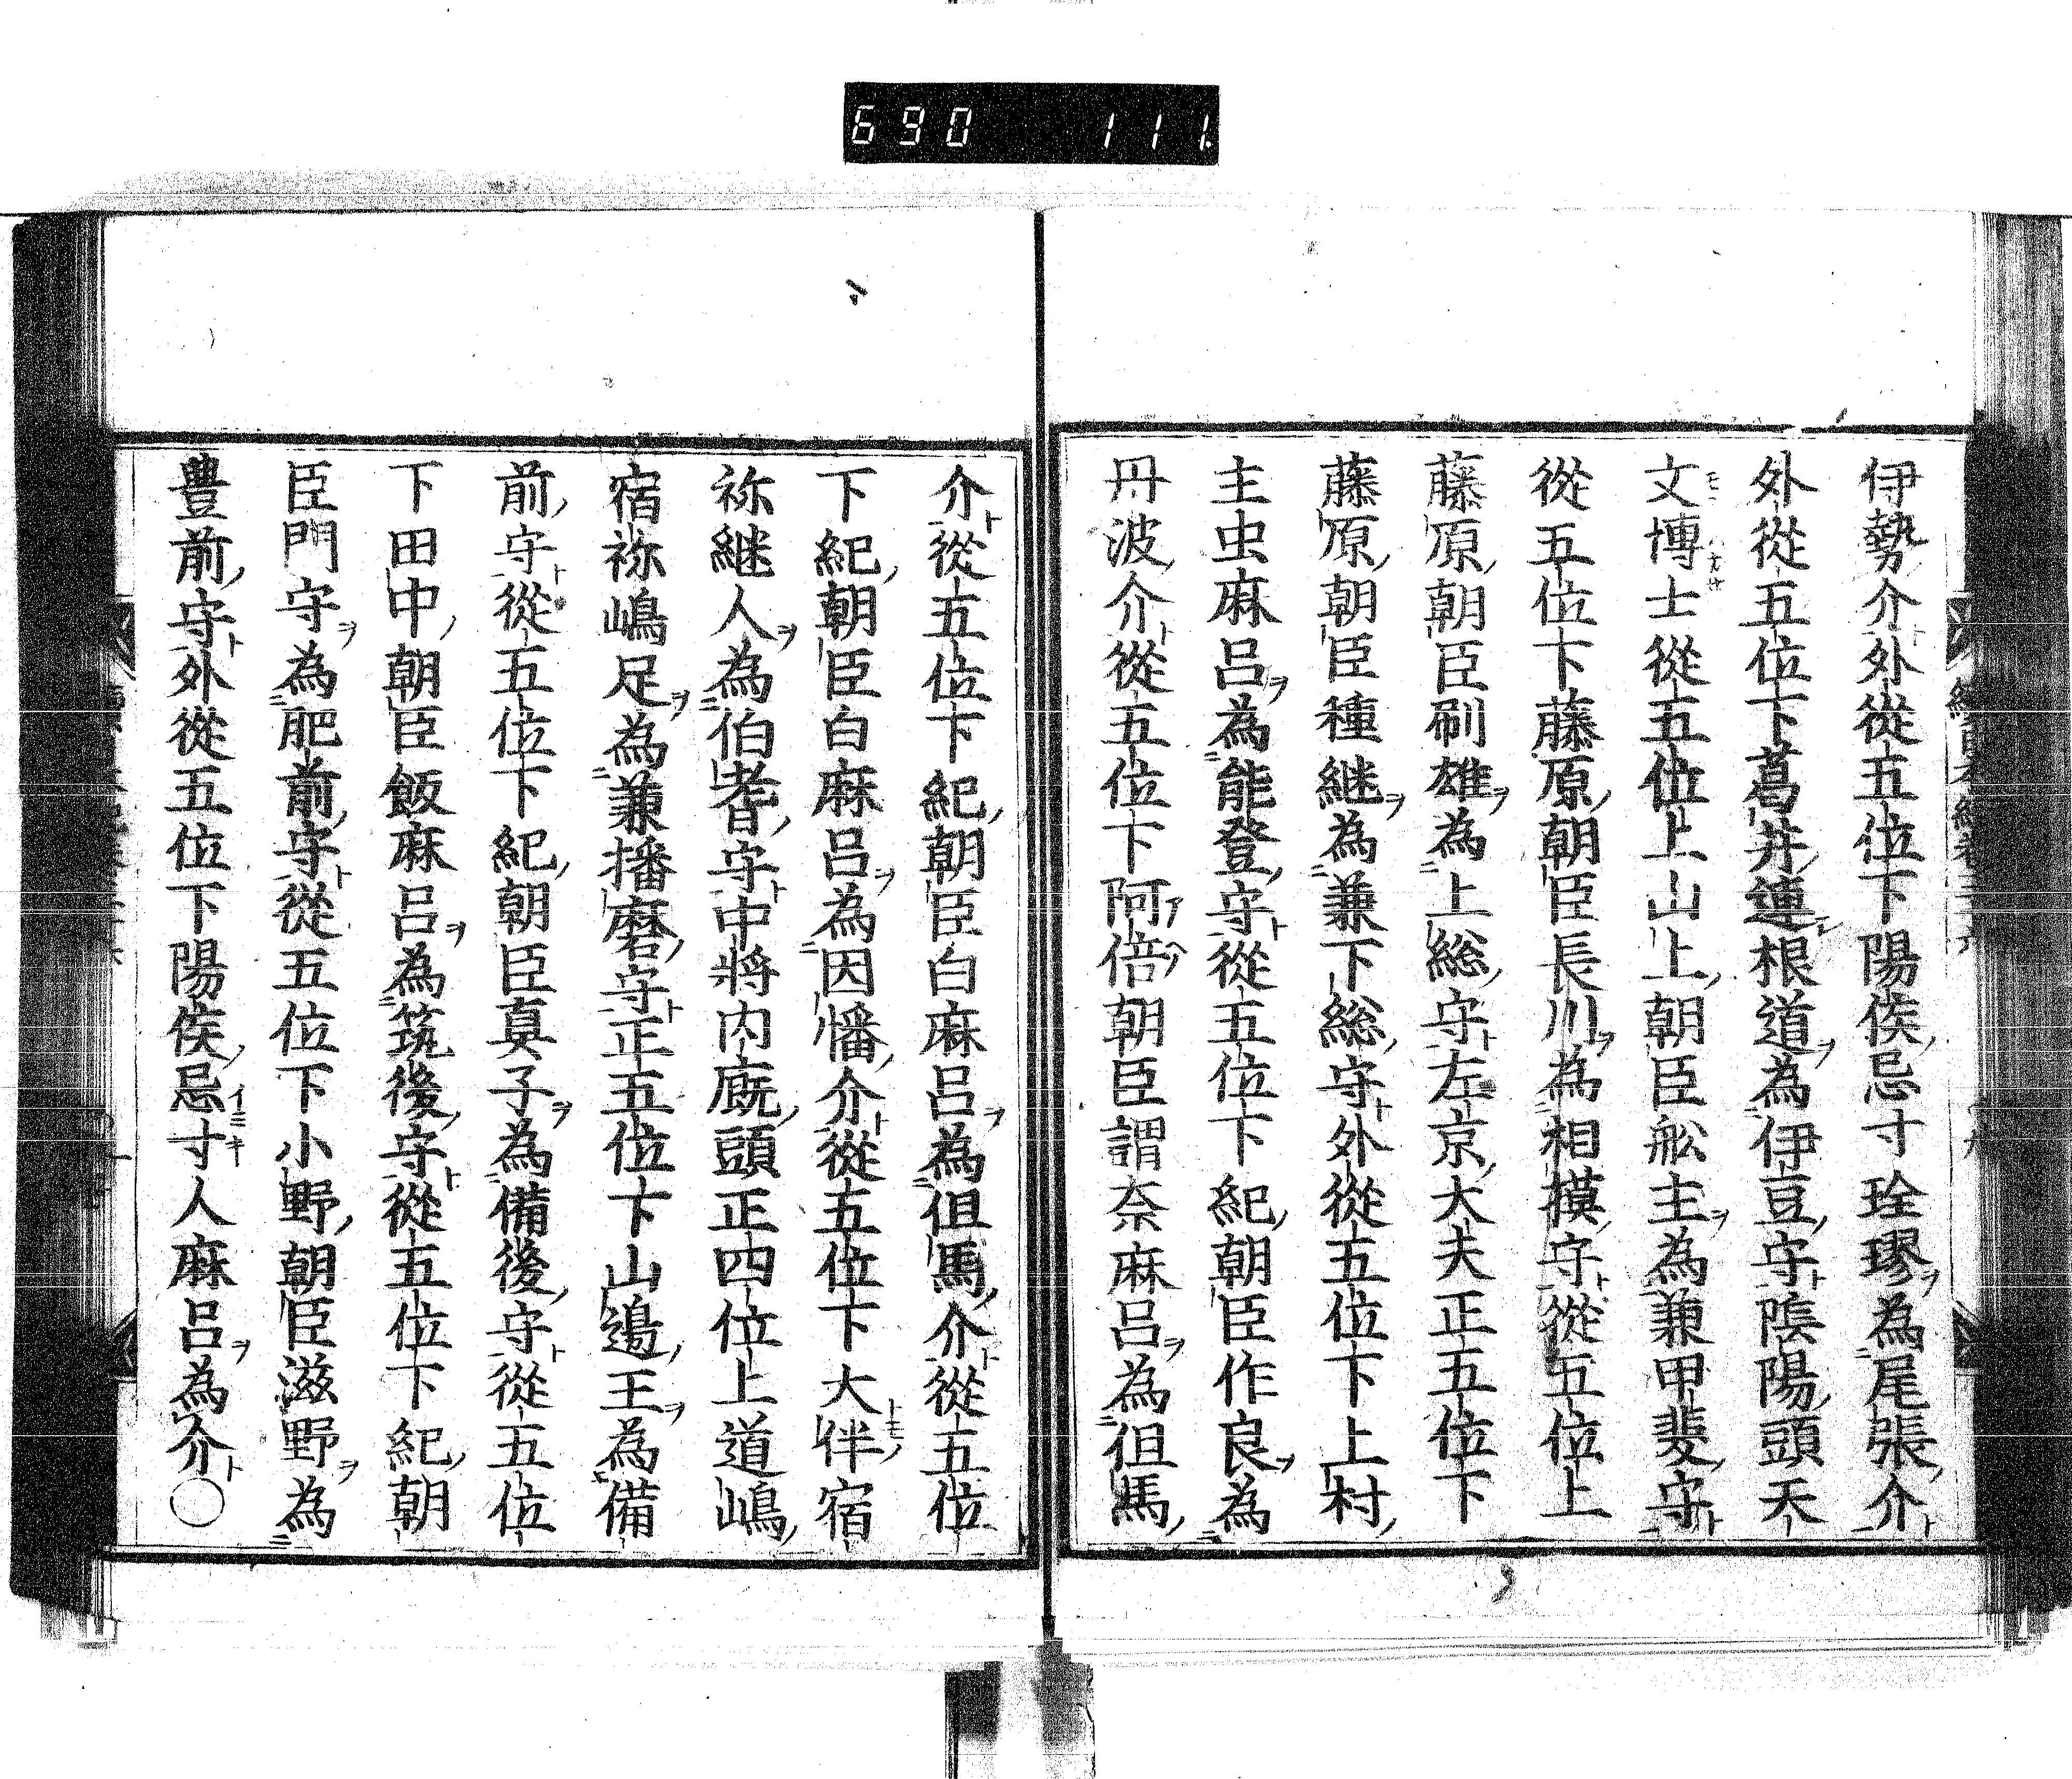 690 111
伊勢介外從五位下陽侯忌寸玲璆為尾張介
外從五位下葛井連根道為伊豆守陰陽頭天
文博士從五位上山上朝臣舩主為兼甲斐守
從五位下藤原朝臣長川為相摸守從五位上
藤原朝臣刷雄為上総守左京大夫正五位下
藤原朝臣種継為兼下総守外從五位下上村
主虫麻呂為能登守從五位下紀朝臣作良為
丹波介從五位下阿倍朝臣謂奈麻呂為但馬
介從五位下紀朝臣白麻呂為但馬介從五位
下紀朝臣白麻呂為因幡介從五位下大伴宿
祢継人為伯耆守中將內廐頭正四位上道嶋
宿祢嶋足為兼播磨守正五位下山邉王為備
前守從五位下紀朝臣真子為備後守從五位
下田中朝臣飯麻呂為筑後守從五位下紀朝
臣門守為肥前守從五位下小野朝臣滋野為
豊前守外從五位下陽侯忌寸人麻呂為介〇